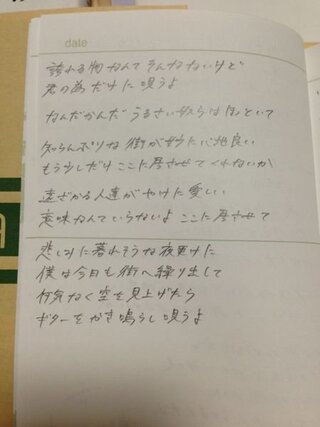 date
誇れる物なんてそんなないけど
君の為だけに唄うよ
なんだかんだ うるさい奴らはほっといて
知らんぷりな 街が妙に心地良い
もう少しだけ ここに居させて くれないか
遠ざかる人達が やけに愛しい
意味なんていらないよ ここに居させて
悲しみに暮れそうな夜更けに
僕は今日も街へ繰り出して
何気なく空を見上げたら
ギターをかき鳴らし唄うよ